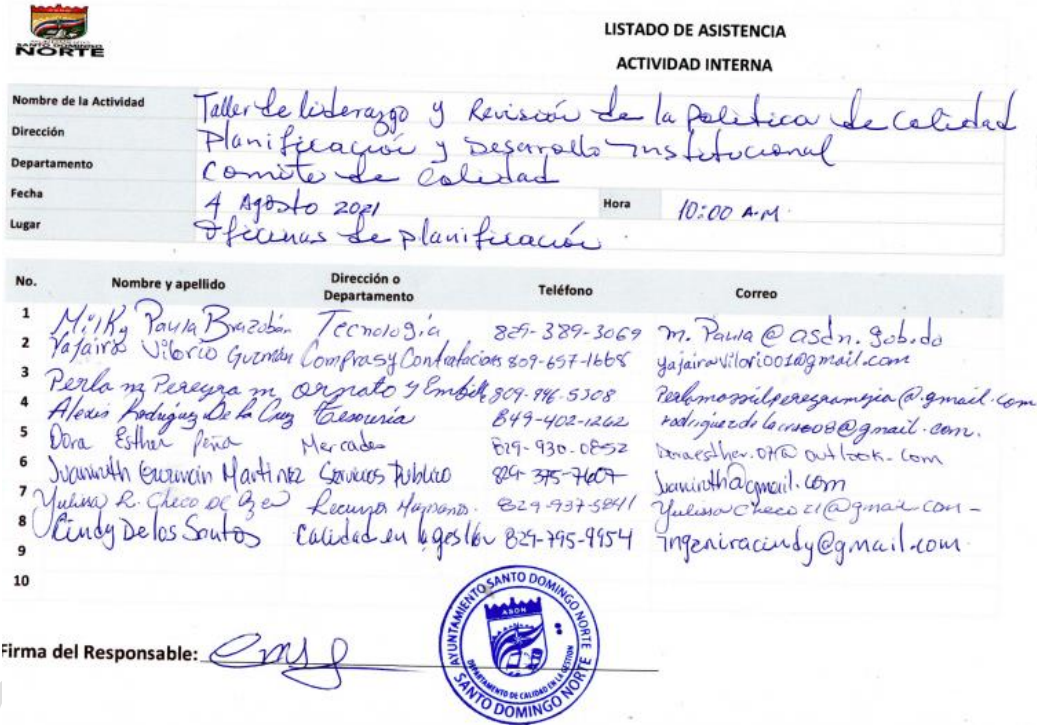 SANTO DOMINGO
NORTE
LISTADO DE ASISTENCIA
ACTIVIDAD INTERNA
Nombre de la Actividad Taller de liderazgo y Revisión de la política de calidad
Dirección Planificación y Desarrollo Institucional
Departamento Comite de Calidad
Fecha 4 Agosto 2021 Hora 10:00 A.M.
Lugar Oficinas de planificación
No. Nombre y apellido Dirección o Departamento Teléfono Correo
1 Milky Paula Brazobán Tecnología 829-389-3069 m.Paula@asdn.gob.do
2 Yajaira Vilorio Guzmán Compras y Contrataciones 809-657-1668 yajairavilorio01@gmail.com
3 Perla m Pereyra m ornato y 809-996-5308
4 Alexis Rodriguez De la Cruz Tesoreria 849-402-1262
5 Dora Esther Peña Mercados 829-930-0852 Doraesther.07@outlook.com
6 Martinez Servicios Público 829-375-7607
7 Yulissa R. Checo De Recursos Humanos. 829-937-5841 Yulissacheco21@gmail.com-
8 Cindy De los Santos Calidad en la gestión 829-795-9954 ingeniracindy@gmail.com
9
10
Firma del Responsable:
AYUNTAMIENTO SANTO DOMINGO NORTE
ASDN
DEPARTAMENTO DE CALIDAD EN LA GESTION
SANTO DOMINGO NORTE